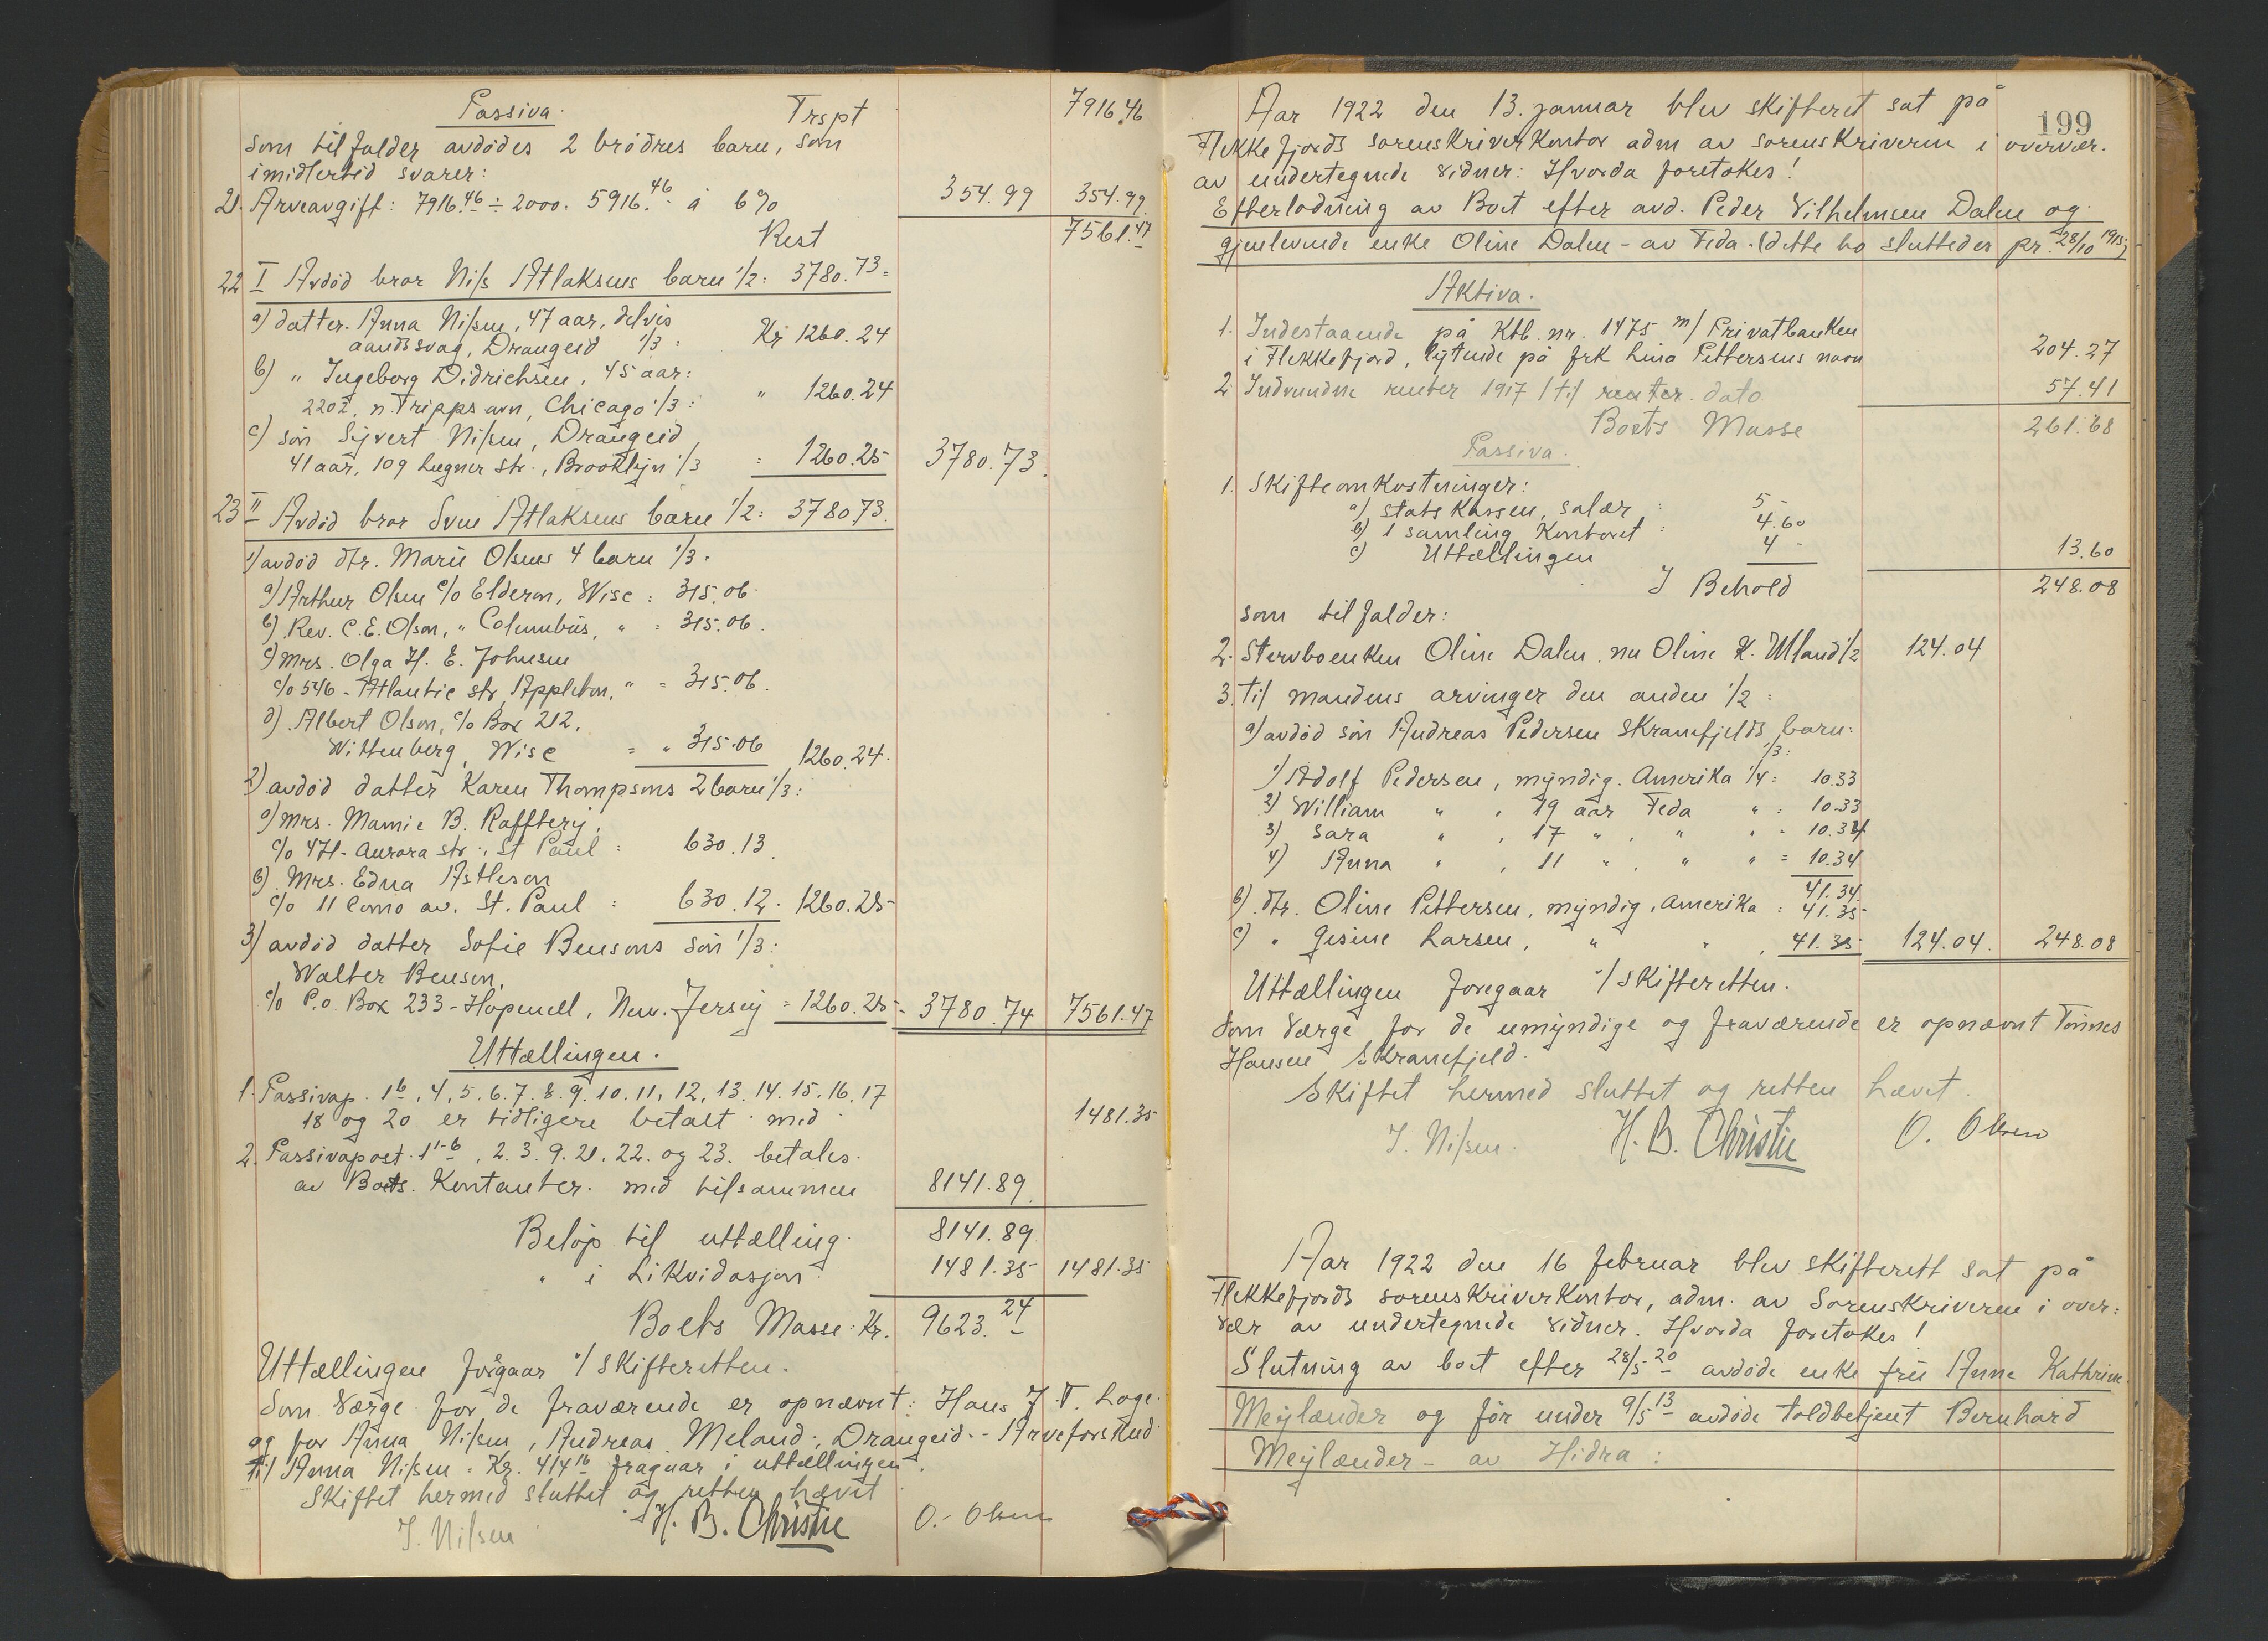 Passiva. Trspt 7916.46
som tilfalder avdödes 2 brödres barn, som
imidlertid svarer:
21. Arveavgift: 7916.46 ÷ 2000. 5916.46 á 6% 354.99 354.99
Rest 7561.47
22 I Avdöd bror Nils Atlaksens barn 1/2: 3780.73.
a) datter. Anna Nilsen, 47 aar, delvis
aandssvag, Drangeid 1/3: Kr 1260.24
b) " Ingeborg Didrichsen, 45 aar:
2202, n. Tripps avn, Chicago 1/3: " 1260.24
c) sön Sijvert Nilsen, Drangeid
41 aar, 109 Luqner str., Brooklijn 1/3 = 1260.25 3780.73.
23 II Avdöd bror Sven Atlaksens barn 1/2: 3780.73.
1) avdöd dtr. Marie Olsens 4 barn 1/3.
a) Arthur Olsen c/o Elderon, Wisc = 315.06.
b) Rev. C. E. Olson, " Columbus, " = 315.06.
c) Mrs. Olga H. E. Johnsen
c/o 546 - Atlantic str, Appleton, " = 315.06.
d) Albert Olson, c/o Box 212,
Wittenberg, Wisc = " 315.06 1260.24.
2) avdöd datter Karen Thompsons 2 barn 1/3:
a) Mrs. Mamie B. Rafftery,
c/o 471 - Aurora str., St Paul = 630.13.
b) Mrs. Edna Astleson
c/o 11 Como av. St. Paul = 630.12. 1260.25
3) avdöd datter Sofie Bensons sön 1/3:
Walter Benson,
c/o P.o. Box 233 - Hopewell, New. Jersey = 1260.25 - 3780.74 7561.47
Uttællingen.
1. Passivap. 1b, 4, 5. 6. 7. 8. 9. 10. 11, 12, 13. 14. 15. 16. 17
18 og 20 er tidligere betalt med 1481.35
2. Passivapost. 1 1-6, 2. 3. 9. 21. 22. og 23. betales.
av Boets. Kontanter. med tilsammen 8141.89
Belöp til uttælling. 8141.89
" i Likvidasjon. 1481.35 1481.35
Boets Masse: Kr. 9623.24
Uttællingen foregaar v/ Skifteretten.
Som Værge for de fraværende er opnævnt: Hans J. T. Loge.
og for Anna Nilsen, Andreas Meland, Drangeid. - Arveforskud
til Anna Nilsen = Kr. 414.16 fragaar i uttællingen.
Skiftet hermed sluttet og retten hævet
J. Nilsen H. B. Christie O. Olsen
199
Aar 1922 den 13. januar blev skifteret sat på
Flekkefjords sorenskriverkontor adm av sorenskriveren i overvær.
av undertegnede vidner: Hvorda foretokes!
Efterlodning av Boet efter avd. Peder Vilhelmsen Dalen og
gjenlevende enke Oline Dalen - av Feda. (dette bo sluttedes pr. 28/10 1915)
Aktiva.
1. Indestaaende på Ktb. nr. 1475 m/ Privatbanken
i Flekkefjord, lytende på frk Lina Pettersens navn 204.27
2. Indvundne renter 1917 / til renter. dato 57.41
Boets Masse 261.68
Passiva.
1. Skifteomkostninger:
a) statskassen, salær: 5 -
b) 1 samling Kontoret: 4.60
c) Uttællingen 4 - 13.60
I Behold 248.08
som tilfalder:
2. Stervboenken Oline Dalen, nu Oline K. Uland 1/2 124.04
3. Til mandens arvinger den anden 1/2 =
a) avdöd sön Andreas Pedersen Skranefjelds barn:
1/3:
1) Adolf Pedersen, myndig. Amerika 1/4 = 10.33
2) William " , 19 aar Feda " = 10.33
3) Sara " , 17 " , " " = 10.34
4) Anna " , 11 " , " " = 10.34
41.34.
b) dtr. Oline Pettersen, myndig, Amerika = 41.35
c) " Gesine Larsen, " " , 41.35 124.04. 248.08
Uttællingen foregaar v/ Skifteretten.
Som Værge for de umyndige og fraværende er opnævnt Tönnes
Hansen Skranefjeld.
Skiftet hermed sluttet og retten hævet.
J. Nilsen. H. B. Christie O. Olsen
Aar 1922 den 16 februar blev skifterett sat på
Flekkefjords sorenskriverkontor, adm. av Sorenskriveren i over:
vær av undertegnede vidner. Hvorda foretokes!
Slutning av boet efter 28/5 20 avdöde enke frü Anne Kathrine
Meylænder og för under 9/5 13 avdöde toldbetjent Bernhard
Meylænder - av Hidra: